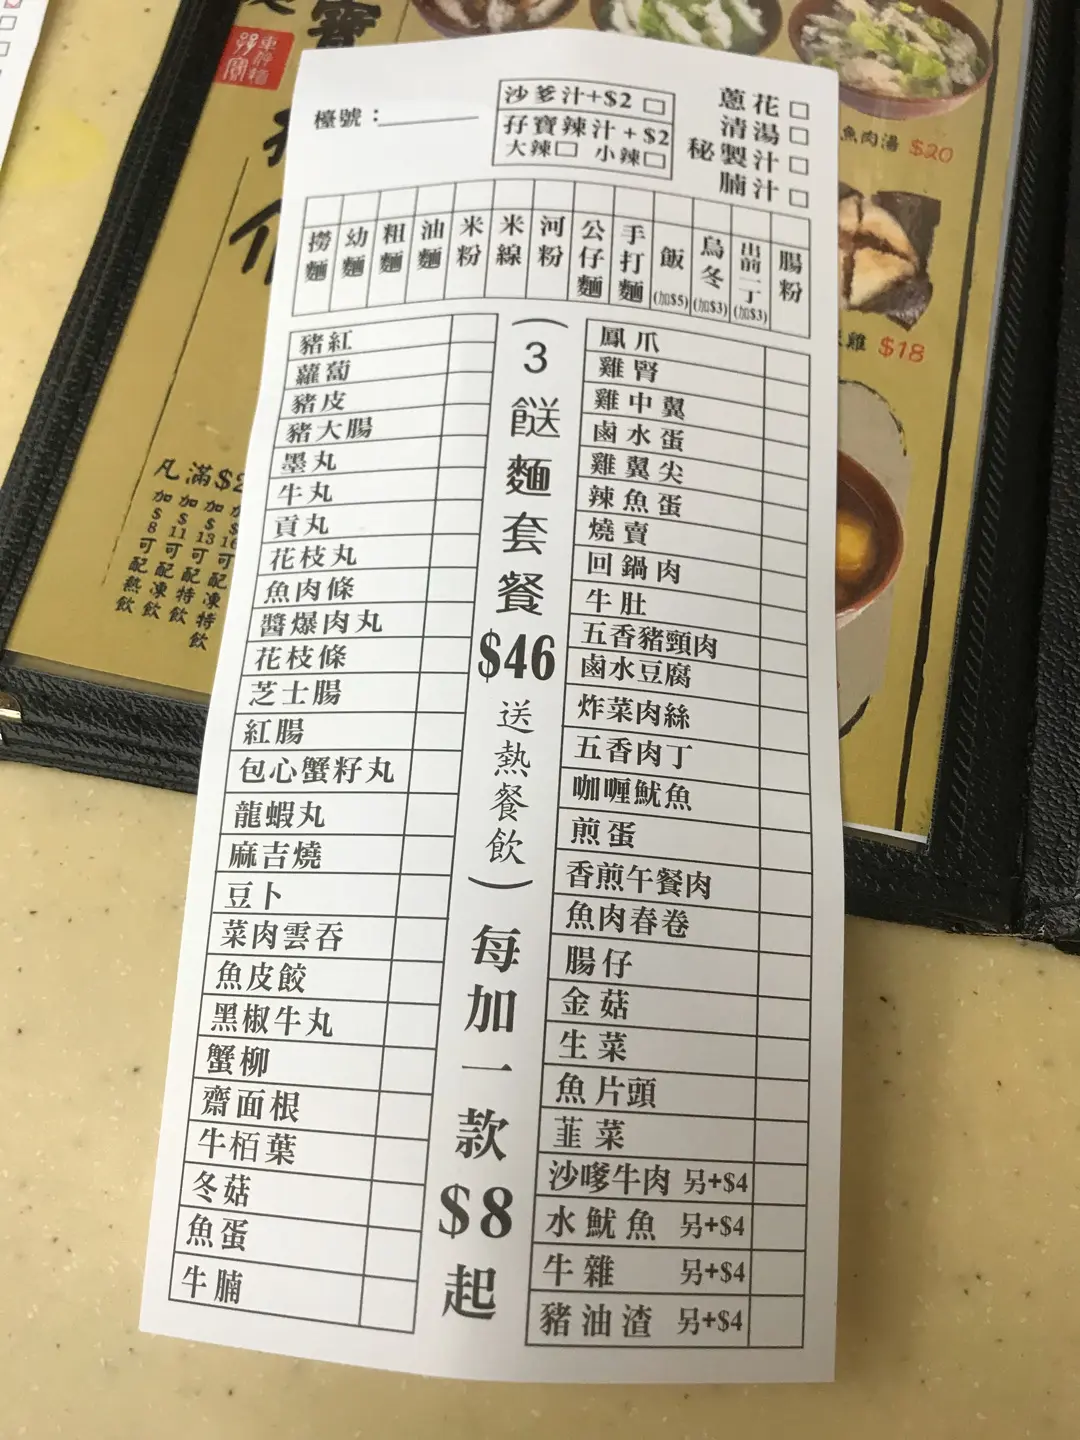 寶
車仔麵
孖寶
魚肉湯 $20
雞 $18
凡滿$2
加$8可配熱飲
加$11可配凍飲
加$13可配特飲
加$16可配凍特飲
檯號：
沙爹汁+$2
孖寶辣汁+$2
大辣 小辣
蔥花
清湯
秘製汁
腩汁
撈麵
幼麵
粗麵
油麵
米粉
米線
河粉
公仔麵
手打麵
飯(加$5)
烏冬(加$3)
出前一丁(加$3)
腸粉
豬紅
蘿蔔
豬皮
豬大腸
墨丸
牛丸
貢丸
花枝丸
魚肉條
醬爆肉丸
花枝條
芝士腸
紅腸
包心蟹籽丸
龍蝦丸
麻吉燒
豆卜
菜肉雲吞
魚皮餃
黑椒牛丸
蟹柳
齋面根
牛栢葉
冬菇
魚蛋
牛腩
(3餸麵套餐$46送熱餐飲)每加一款$8起
鳳爪
雞腎
雞中翼
鹵水蛋
雞翼尖
辣魚蛋
燒賣
回鍋肉
牛肚
五香豬頸肉
鹵水豆腐
炸菜肉絲
五香肉丁
咖喱魷魚
煎蛋
香煎午餐肉
魚肉春卷
腸仔
金菇
生菜
魚片頭
韮菜
沙嗲牛肉 另+$4
水魷魚 另+$4
牛雜 另+$4
豬油渣 另+$4